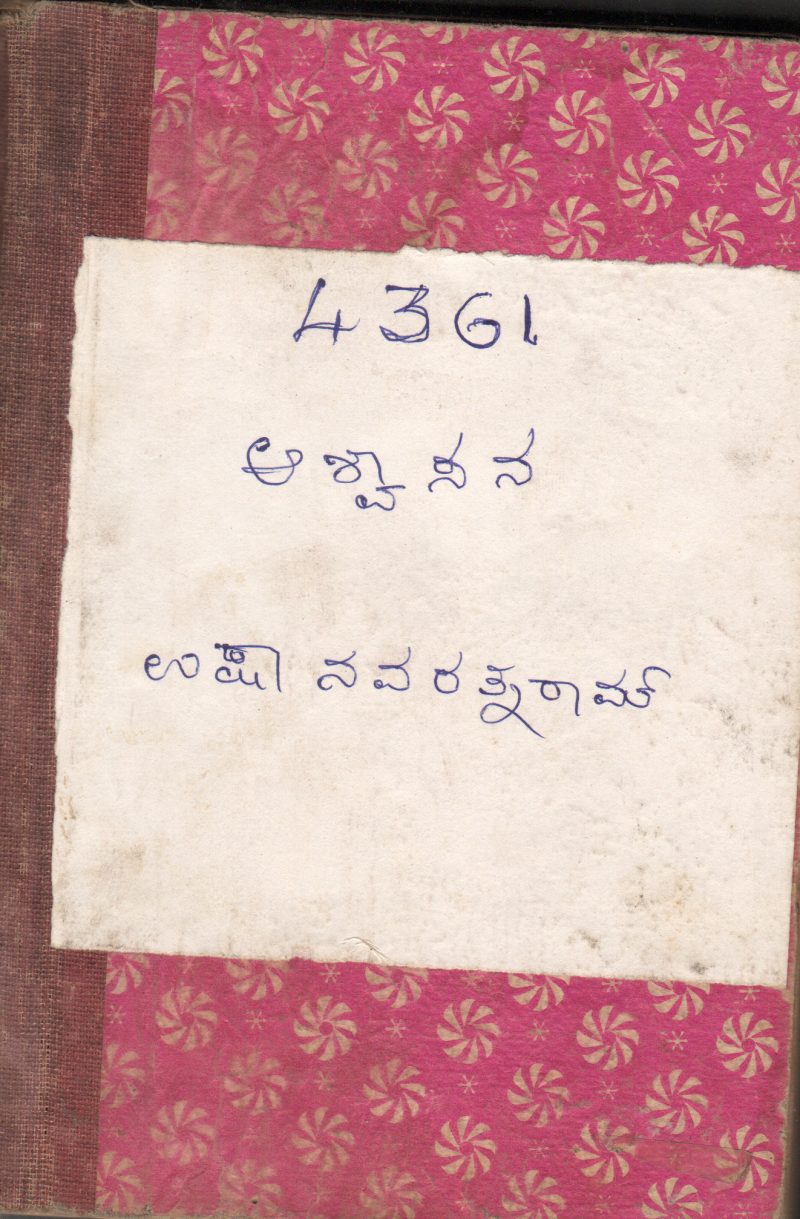 4361
ಆಶ್ವಾಸನ
ಉಷಾ ನವರತ್ನರಾಮ್